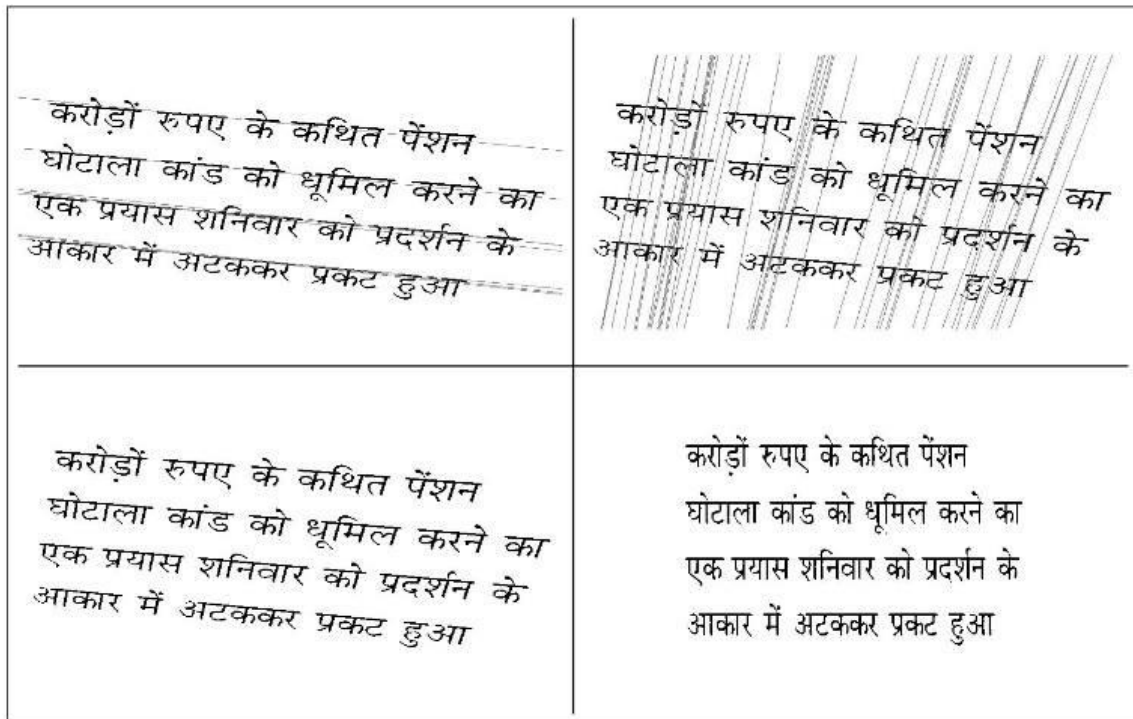 करोड़ों रुपए के कथित पेंशन
घोटाला कांड को धूमिल करने का
एक प्रयास शनिवार को प्रदर्शन के
आकार में अटककर प्रकट हुआ
करोड़ों रुपए के कथित पेंशन
घोटाला कांड को धूमिल करने का
एक प्रयास शनिवार को प्रदर्शन के
आकार में अटककर प्रकट हुआ
करोड़ों रुपए के कथित पेंशन
घोटाला कांड को धूमिल करने का
एक प्रयास शनिवार को प्रदर्शन के
आकार में अटककर प्रकट हुआ
करोड़ों रुपए के कथित पेंशन
घोटाला कांड को धूमिल करने का
एक प्रयास शनिवार को प्रदर्शन के
आकार में अटककर प्रकट हुआ